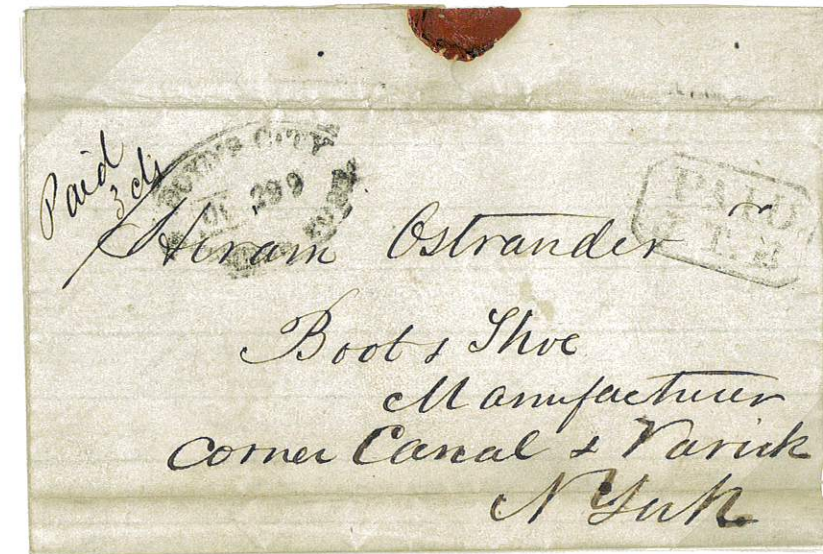 Paid
3 cts
BOYD'S CITY
29 9
PAID
J.T.B
Hiram Ostrander
Boot & Shoe
Manufacturer
Corner Canal & Varick
N York